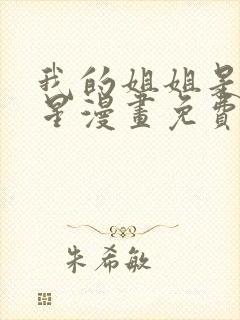 我的姐姐是
星漫畫免費
朱希敏